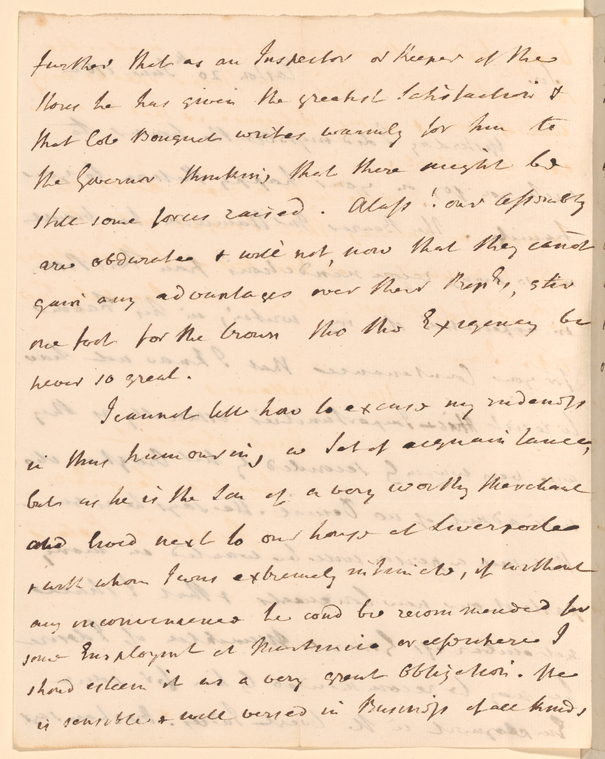 further that as an Inspector or Keeper of the
Stores he has given the greatest Satisfaction &
that Colo Bouquet writes warmly for him to
the Governor thinking that there might be
still some forces raised. Alass! our Assembly
are obdurate & will not, now that they cannot
gain any advantages over their Proprs, stir
one foot for the Crown tho the Exigency be
never so great.
I cannot tell how to excuse my rudeness
in thus humouring a Set of acquaintance,
but as he is the Son of a very worthy Merchant
and lived next to our house at Liverpoole
& with whom I was extremely intimate, if without
any inconvenience he coud be recommended for
some Employmt at Martinico or elsewhere I
shoud esteem it as a very great Obligation. He
is sensible & well versed in Business of all kinds